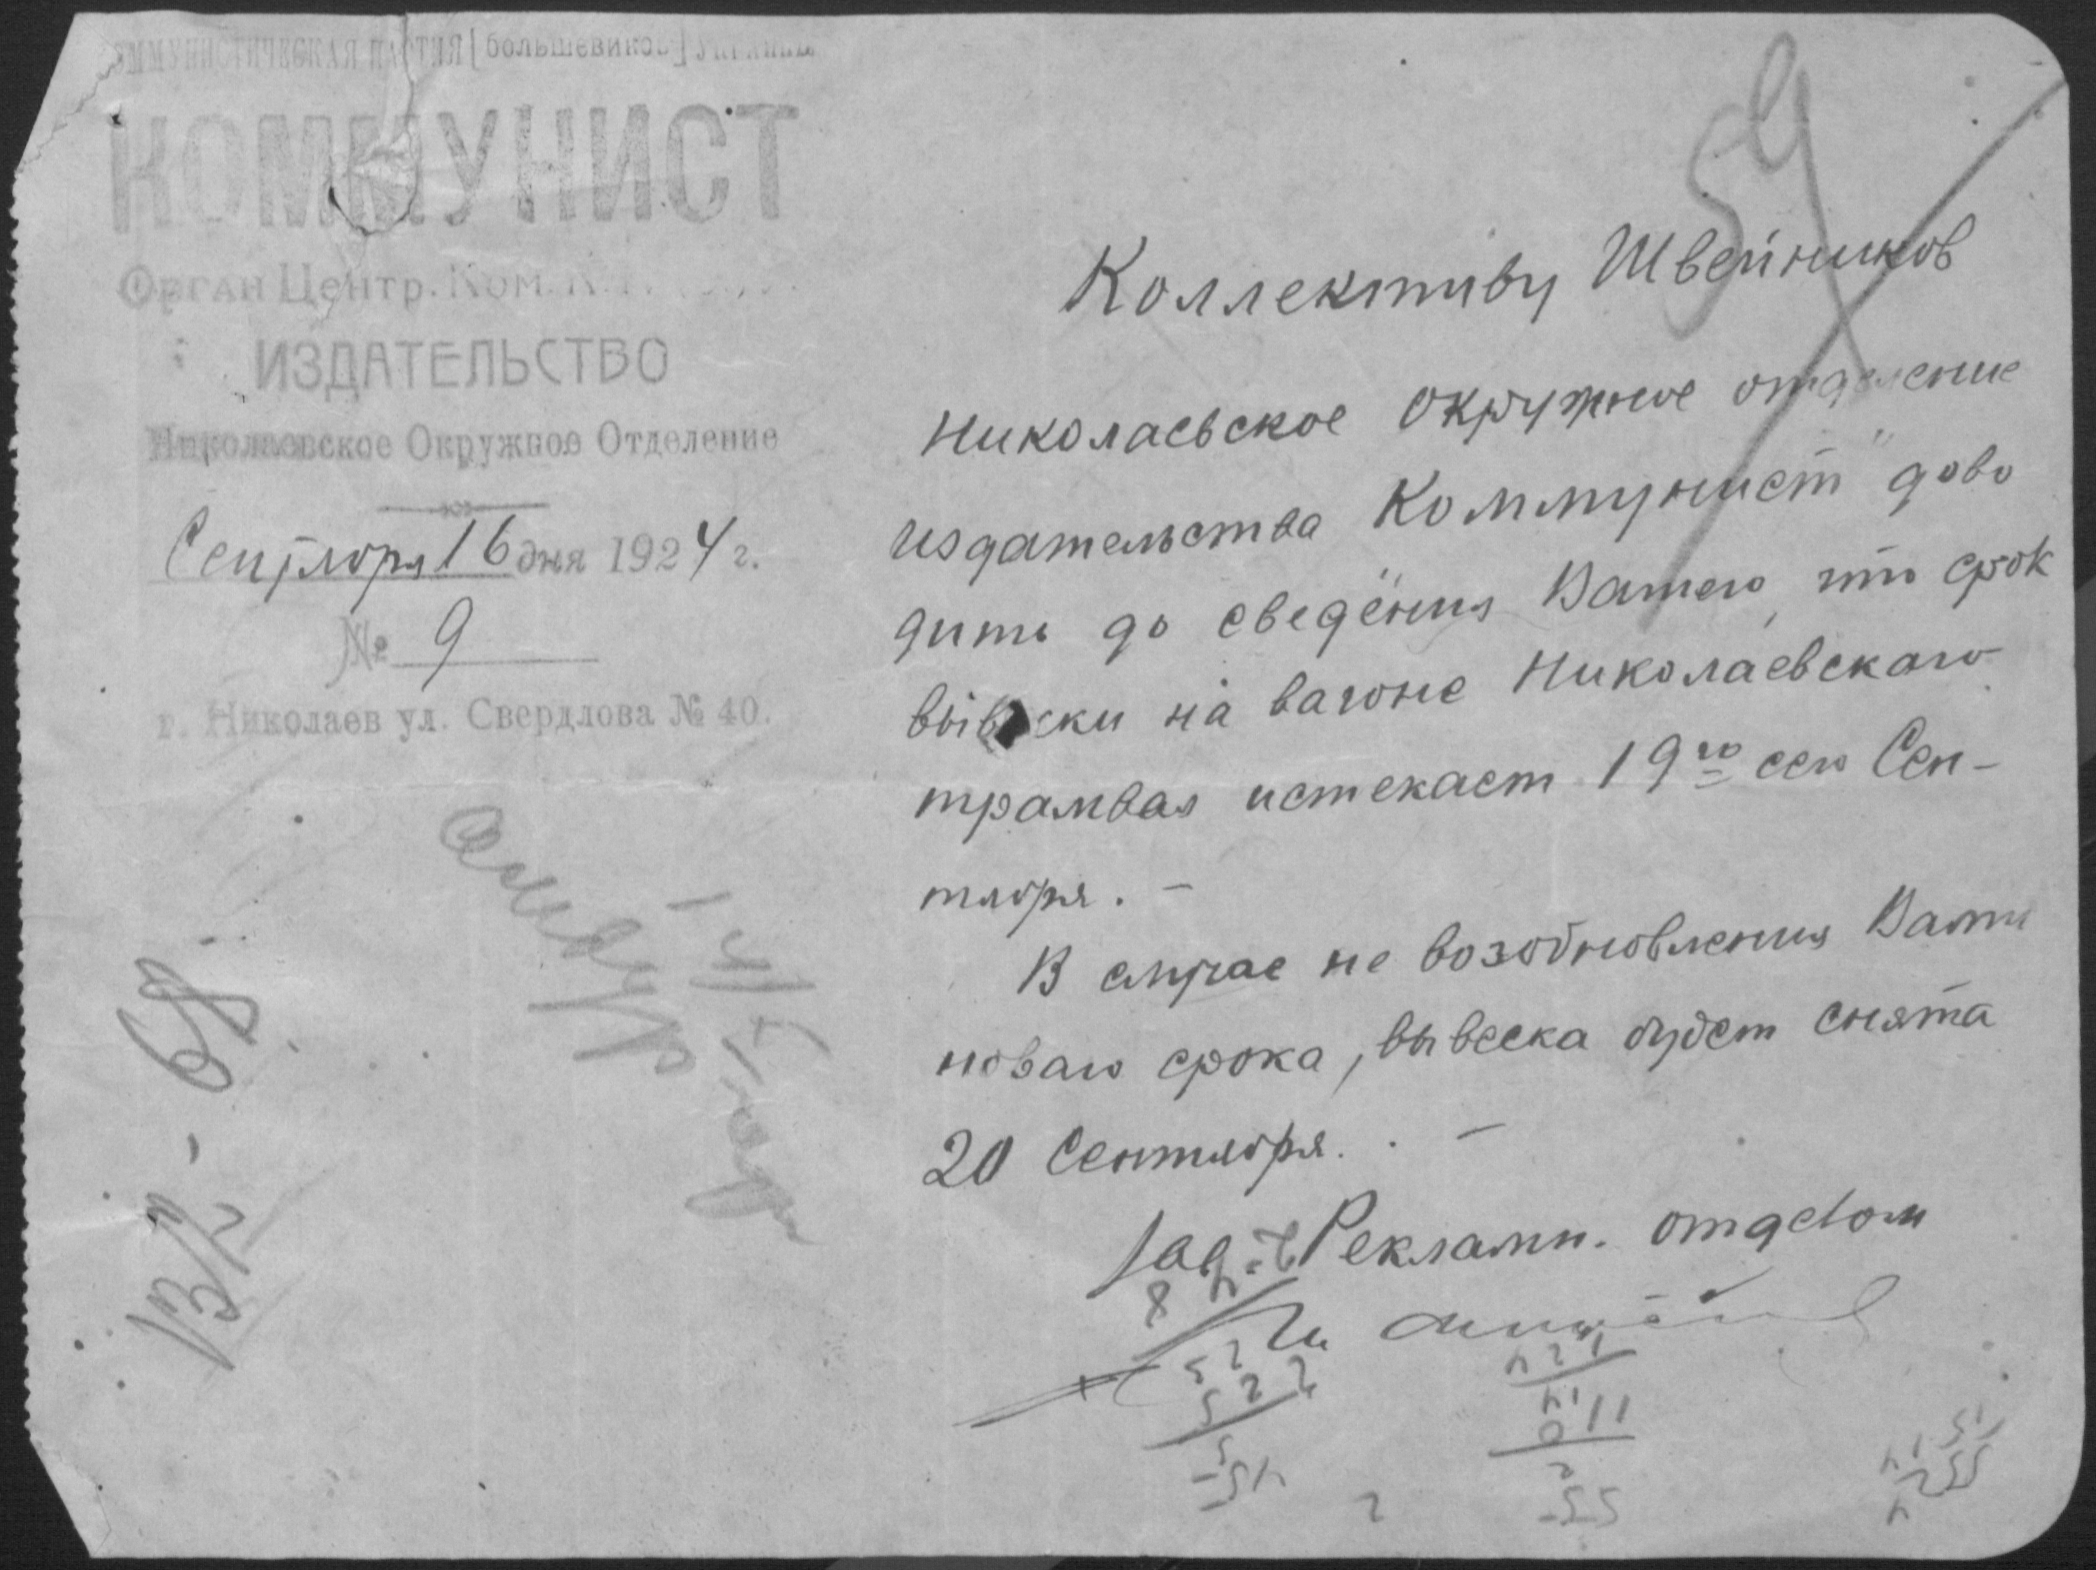 КОММУНИСТИЧЕСКАЯ ПАРТИЯ [большевиков] УКРАИНЫ
КОММУНИСТ
Орган Центр. Ком.
ИЗДАТЕЛЬСТВО
Николаевское Окружное Отделение
Сентября 16 дня 1924 г.
№ 9
г. Николаев ул. Свердлова № 40.
59
Коллективу Швейников
Николаевское окружное отделение
издательства Коммунист" дово
дить до сведения Вашего, что срок
вывески на вагоне Николаевскаго
трамвая истекает 19го сего Сен-
тября. –
В случае не возобновления Вами
новаго срока, вывеска будет снята
20 Сентября. –
Зав. Рекламн. отделом